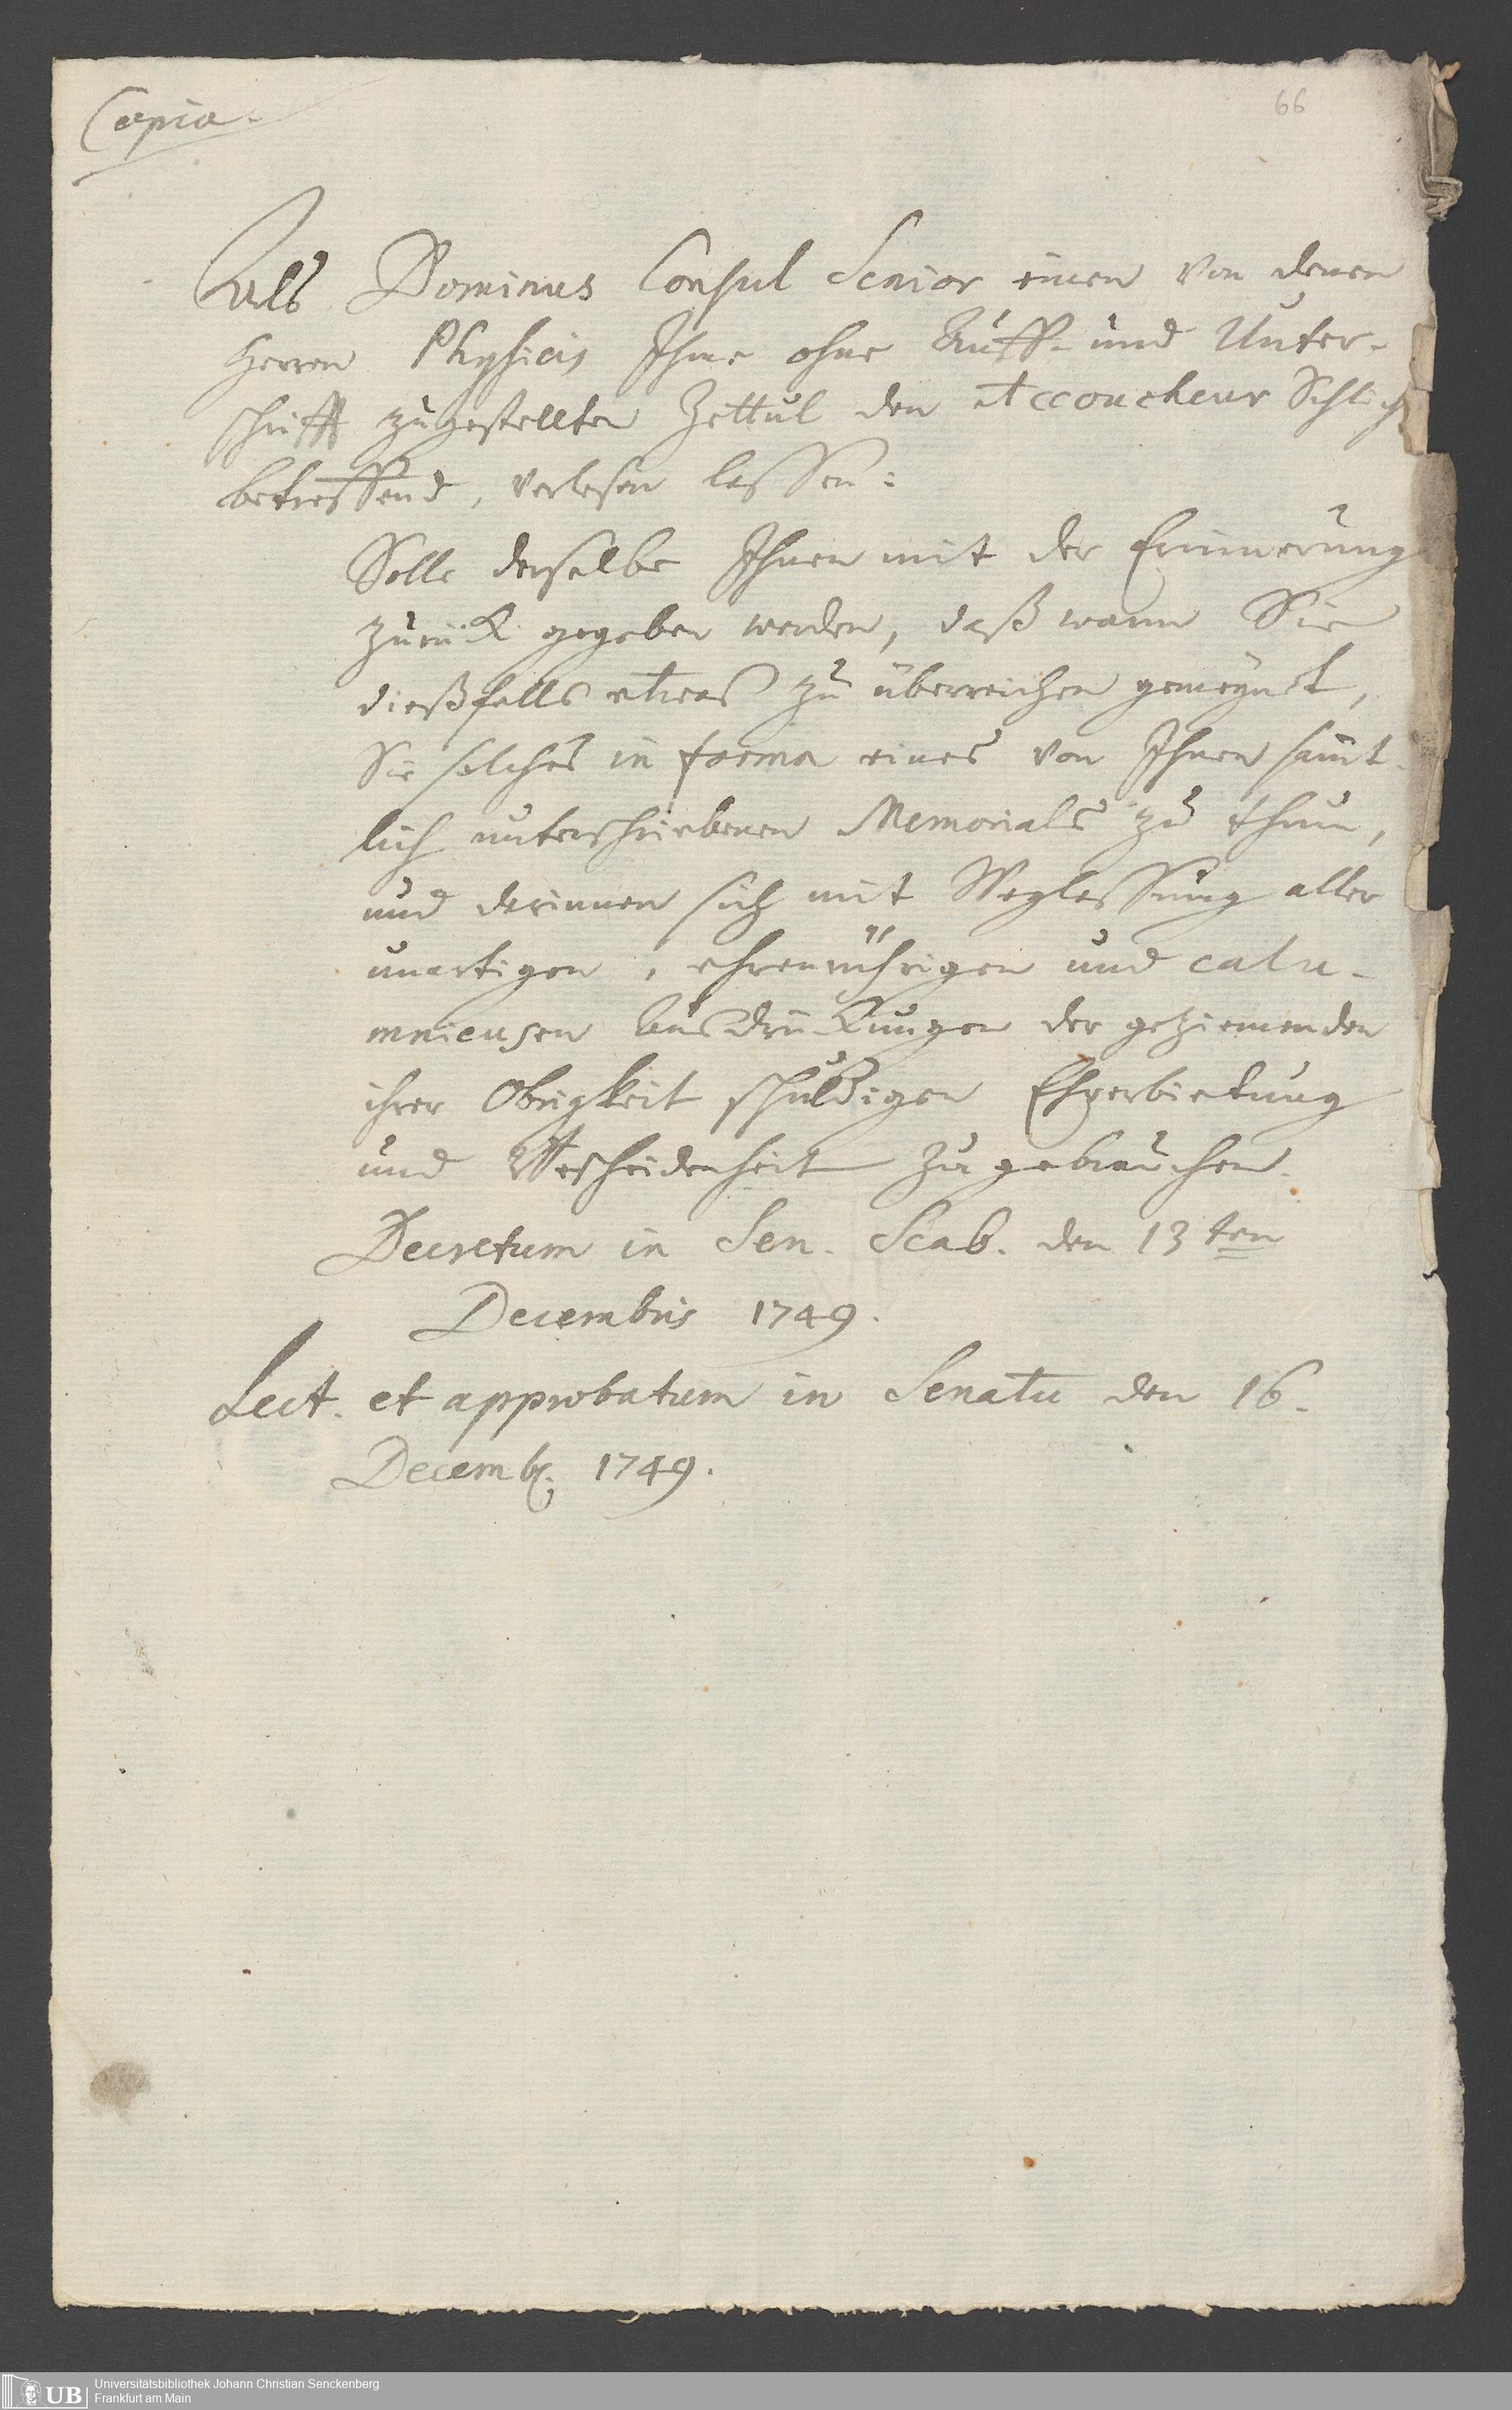 Copia.
66
Als Dominus Consul Senior einen von denen
Herren Physicis Ihme ohne Auff- und Unter-
schrifft zugestellten Zettul den Accoucheur Schlicht
betreffend, verlesen lassen:
Solle derselbe Ihnen mit der Erinnerung
zurück gegeben werden, daß wann Sie
dießfalls etwas zu überreichen gemeynet,
Sie solches in forma eines von Ihnen sämt-
lich unterschriebenen Memorials zu thun,
und darinnen sich mit Weglassung aller
unartigen, ehrenrührigen und calu-
mnieusen Ausdrückungen der geziemenden
ihrer Obrigkeit schuldigen Ehrerbietung
und Bescheidenheit zu gebrauchen.
Decretum in Sen. Scab. den 13ten
Decembris 1749.
Lect. et approbatum in Senatu den 16.
Decembr. 1749.
UB
Universitätsbibliothek Johann Christian Senckenberg
Frankfurt am Main